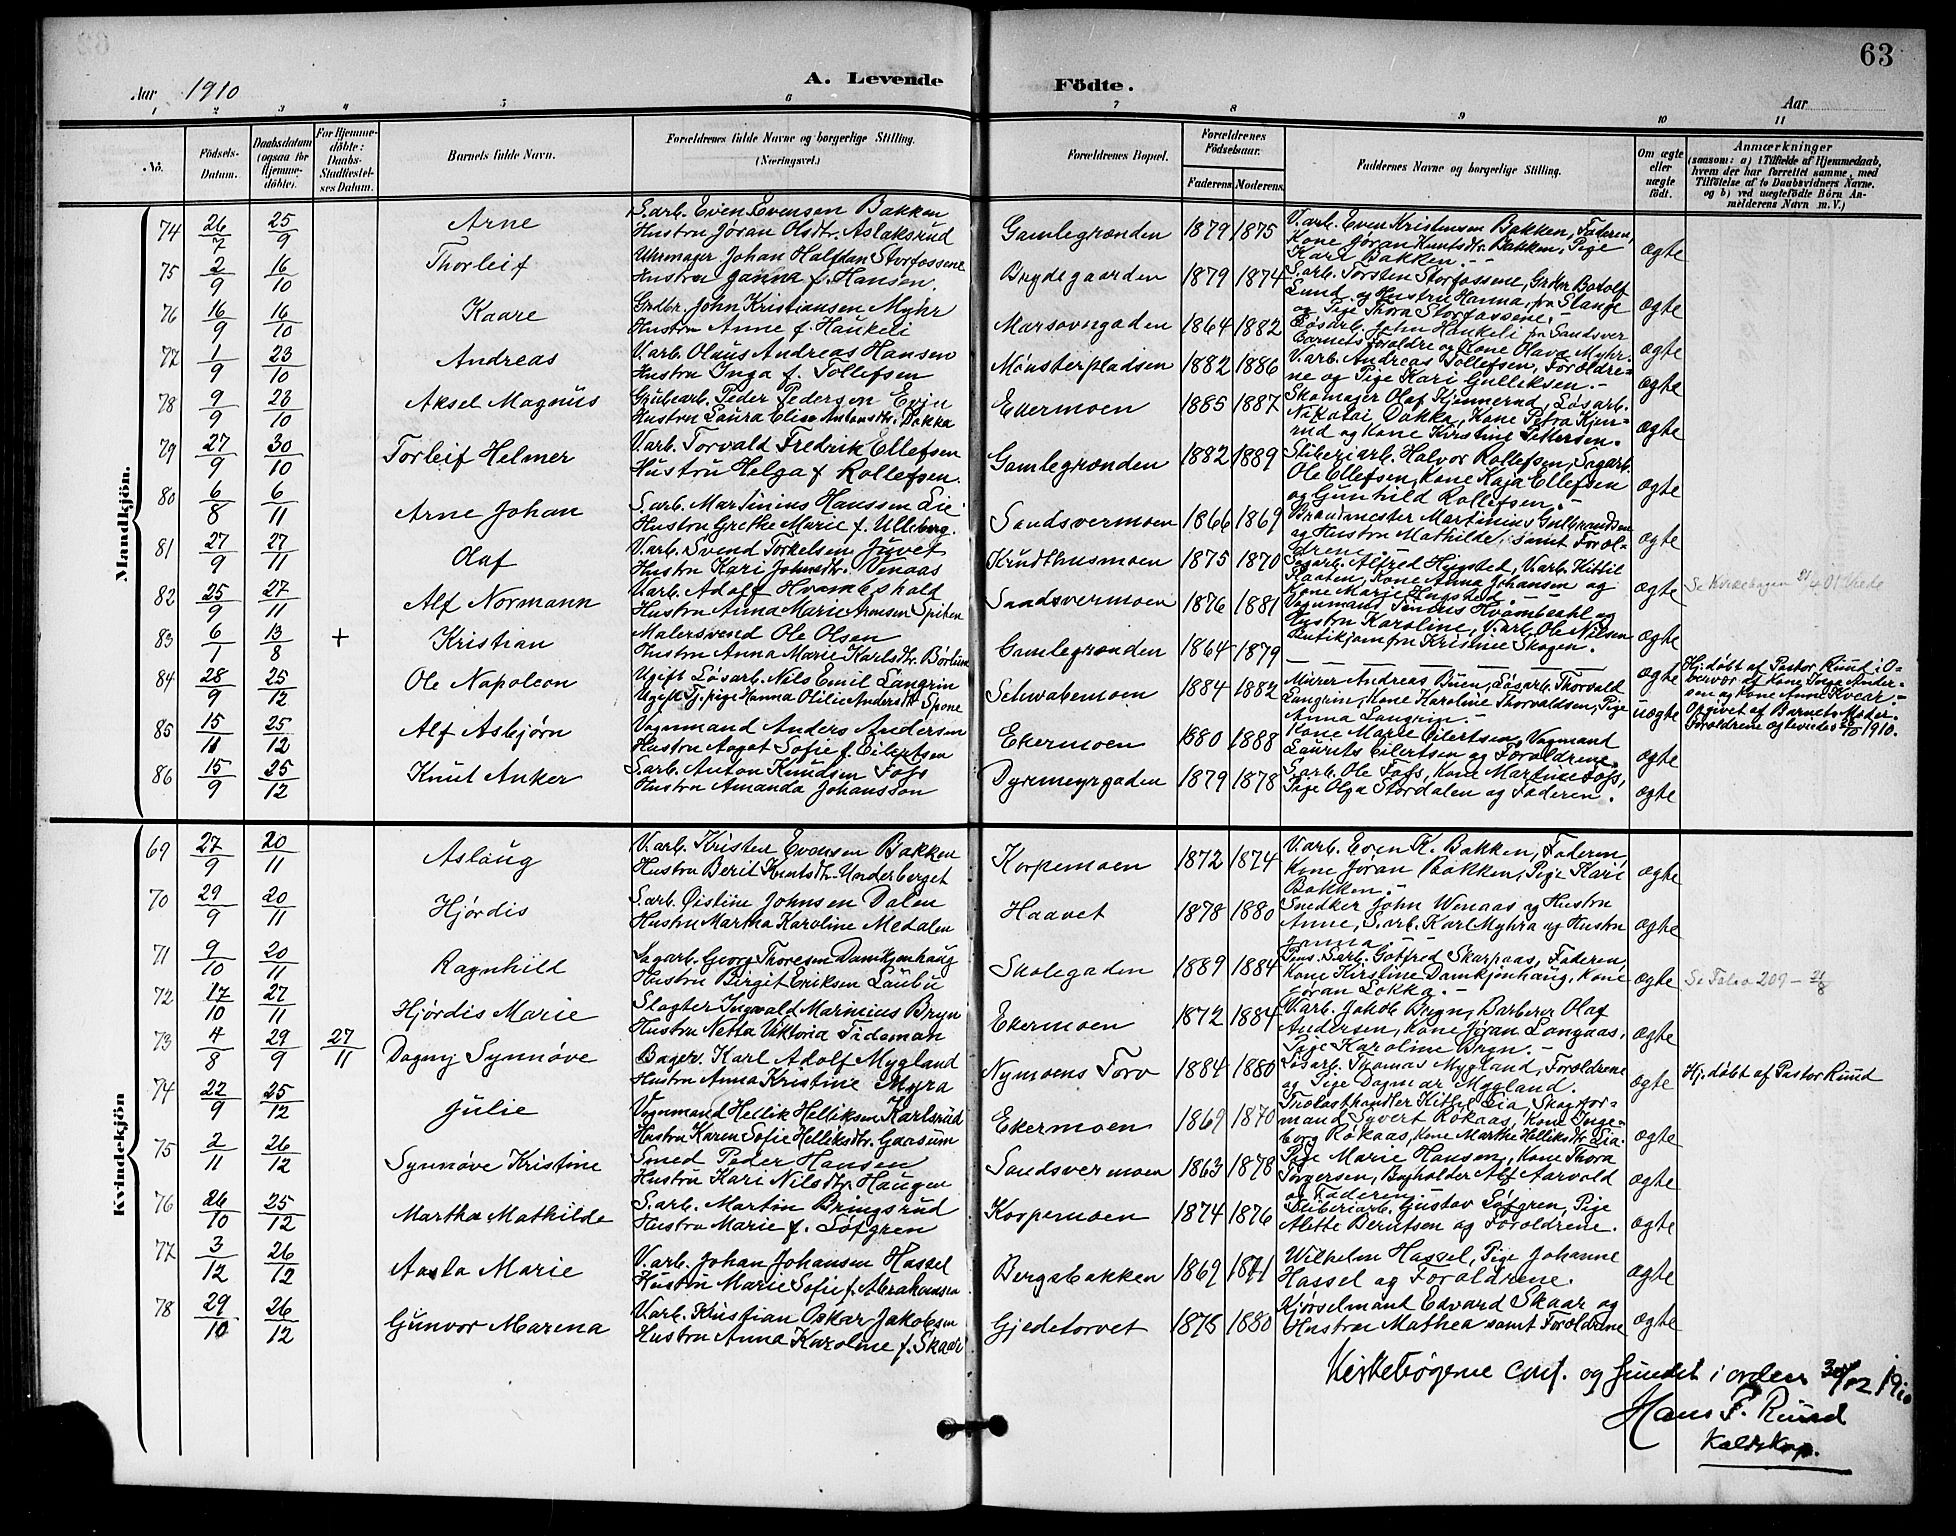 63
A. Levende Födte.
Aar 1910
Aar
1 2 3 4 5 6 7 8 9 10 11
No.
Födsels-Datum.
Daabsdatum (ogsaa for Hjemme-döbte).
For Hjemme-döbte: Daabs-Stadfæstel-ses Datum.
Barnets fulde Navn.
Forældrenes fulde Navne og borgerlige Stilling. (Næringsvei.)
Forældrenes Bopæl.
Forældrenes Födselsaar.
Faderens. Moderens.
Faddernes Navne og borgerlige Stilling.
Om ægte eller uægte födt.
Anmærkninger
(saasom: a) i Tilfælde af Hjemmedaab, hvem der har forrettet samme, med Tilföielse af to Daabsvidners Navne. og b) ved uægtefödte Börn An-melderens Navn m. V.)
Mandkjön.
74 26/7 25/9 Arne
S.arb. Even Evensen Bakken
Hustru Jøran Olsdtr. Aslaksrud
Gamlegrænden 1879 1875
V.arb. Even Kristensen Bakken, Faderen,
Kone Jøran Knutsdtr. Bakken, Pige
Kari Bakken. ægte
75 2/9 16/10 Thorleif
Uhrmager Johan Halfdan Storfossene
Hustru Janna f. Hansen.
Brydegaarden 1879 1874
S.arb. Torsten Storfossene, Grdbr. Botolf
Lund og Hustru Hanna, fra Stange
og Pige Thora Storfossene. ægte
76 16/9 16/10 Kaare
Grdbr. John Kristiansen Myhr
Hustru Anne f. Haukeli
Marsovngaden 1864 1882
Løsarb. John Haukeli fra Sandsver
Barnets Forældre og Kone Olava Myhr. ægte
77 1/9 23/10 Andreas
V.arb. Olaus Andreas Hansen
Hustru Inga f. Tollefsen
Mønsterpladsen 1882 1886
V.arb. Andreas Tollefsen, Forældre-
ne og Pige Kari Gulliksen. ægte
78 9/9 23/10 Aksel Magnus
Grubearb. Peder Pedersen Evju
Hustru Laura Elise Antonsdtr. Dokka
Ekermoen 1885 1887
Skomager Olaf Kjennerud, Løsarb.
Nikolai Dokka, Kone Petra Kjen-
rud og Kone Kirstine Pettersen. ægte
79 27/9 30/10 Torleif Helmer
V.arb. Torvald Fredrik Ellefsen
Hustru Helga f. Rollefsen.
Gamlegrænden 1882 1889
Sliberiarb. Halvor Rollefsen, Sagarb.
Ole Ellefsen, Kone Kaja Ellefsen
og Gunhild Rollefsen. ægte
80 6/8 6/11 Arne Johan
S.arb. Martinius Hanssen Lie
Hustru Grethe Marie f. Ulleberg.
Sandsvermoen 1866 1869
Brandmester Martinius Gulbrandsen
og Hustru Mathilde, samt Foræl-
drene. ægte
81 27/9 27/11 Olaf
V.arb. Svend Torkelsen Juvet
Hustru Kari Johnsdtr. Venaas
Krudthusmoen 1875 1870
Sagarb. Alfred Hugsted, V.arb. Kittil
Flaaten, Kone Anna Johansen og
Kone Marie Hugsted. ægte
82 25/9 27/11 Alf Normann
V.arb. Adolf Hvambsahl
Hustru Anna Marie Arnesen Spiten
Sandsvermoen 1876 1881
Vognmand Tinius Hvambsahl og
Hustru Karoline, V.arb. Ole Nilsen
Butikjomfru Kristine Skogen. ægte
83 6/1 13/8 + Kristian
Malersvend Ole Olsen
Hustru Anna Marie Karlsdtr. Børlum
Gamlegrænden 1864 1879 ægte
Hj.døbt af Pastor Ruud i O-
vervær af Kone Inga Ander-
sen og Kone Anne Kvear.
84 28/9 25/12 Ole Napoleon
Ugift Løsarb. Nils Emil Langrin
Ugift Tj.pige Hanna Otilie Andersdtr. Spone
Schwabemoen 1884 1882
Murer Andreas Buen, Løsarb. Thorvald
Langrin, Kone Karoline Thorvaldsen, Pige
Anna Langrin. uægte
Opgivet af Barnets Moder.
Forældrene ægteviedes 1910.
85 15/11 25/12 Alf Asbjørn
Vognmand Anders Andersen
Hustru Aagot Sofie f. Eilertsen
Ekermoen 1880 1888
Kone Marie Eilertsen, Vogmand
Laurits Eilertsen og Forældrene. ægte
86 15/9 25/12 Knut Anker
S.arb. Anton Knudsen Fofs
Hustru Amanda Johansson
Dyrmyrgaden 1879 1878
S.arb. Ole Fofs, Kone Martine Fofs,
Pige Olga Stordalen og Faderen. ægte
Kvindekjön
69 27/9 20/11 Aslaug
V.arb. Kristen Evensen Bakken
Hustru Berit Knutsdtr. Underberget
Korpemoen 1872 1874
V.arb. Even K. Bakken, Faderen,
Kone Jøran Bakken, Pige Kari
Bakken. ægte
70 29/9 20/11 Hjørdis
S.arb. Øistine Johnsen Dalen
Hustru Martha Karoline Medalen
Haavet 1878 1880
Snedker John Wenaas og Hustru
Anne, S.arb. Karl Myhra og Hustru
Janna. ægte
71 9/10 20/11 Ragnhild
Sagarb. Georg Thoresen Damkjenhaug
Hustru Birgit Eriksen Laubu
Skolegaden 1889 1884
Pens. Sarb. Gotfred Skarpaas, Faderen,
Kone Kirstine Damkjenhaug, Kone
Jøran Lokka. ægte
Se Folio 209 - 21/8
72 17/10 27/11 Hjørdis Marie
Slagter Ingvald Marinius Bryn
Hustru Netta Viktoria Tideman
Ekermoen 1872 1884
V.arb. Jakob Bryn, Barberer Olaf
Andersen, Kone Jøran Langaas,
Pige Karoline Bryn. ægte
73 4/8 29/9 27/11 Dagny Synnøve
Bager. Karl Adolf Mygland
Hustru Anna Kristine Myra
Nymoens Torv 1884 1880
Løsarb. Thomas Mygland, Forældrene
og Pige Dagmar Mygland. ægte
Hj.døbt af Pastor Ruud
74 22/9 25/12 Julie
Vognmand Hellik Helliksen Karlsrud
Hustru Karen Sofie Helliksdtr. Gaasum
Ekermoen 1869 1870
Trælasthandler Kittil Lia, Skogfor-
mand Syvert Rokaas, Kone Inge-
borg Rokaas, Kone Marthe Helliksdtr. Lia. ægte
75 2/11 26/12 Synnøve Kristine
Smed Peder Hansen
Hustru Kari Nilsdtr. Haugen
Sandsvermoen 1863 1878
Pige Marie Hansen, Kone Thora
Torgersen, Bogholder Alf Aarvold
og Faderen. ægte
76 26/10 25/12 Martha Mathilde
S.arb. Martin Bringsrud
Hustru Marie f. Löfgren
Korpemoen 1874 1876
Sliberiarb. Gustav Löfgren, Pige
Alette Berntsen og Forældrene. ægte
77 3/12 26/12 Aasta Marie
V.arb. Johan Johansen Hassel
Hustru Marie Sofie f. Abrahamsen
Bergsbakken 1869 1871
Wilhelm Hassel, Pige Johanne
Hassel og Forældrene. ægte
78 29/10 26/12 Gunvor Marena
V.arb. Kristian Oskar Jakobsen
Hustru Anna Karoline f. Skaar
Gjedetorvet 1875 1880
Kjørselmand Edvard Skaar og
Hustru Mathea samt Forældrene ægte
Kirkebøgerne conf. og fundet i orden 30/12 1910
Hans F. Ruud